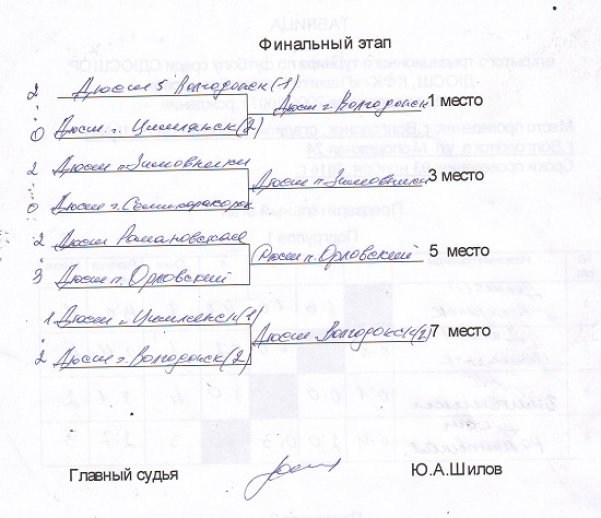 Финальный этап
2 Дюсш 5 Волгодонск (1)
Дюсш г. Волгодонск 1 место
0 Дюсш г. Цимлянск (2)
2 Дюсш п. Зимовники
Дюсш п. Зимовники 3 место
0 Дюсш г. Семикаракорск
2 Дюсш Романовская
Дюсш п. Орловский 5 место
3 Дюсш п. Орловский
1 Дюсш г. Цимлянск (1)
Дюсш Волгодонск (2) 7 место
2 Дюсш г. Волгодонск (2)
Главный судья Ю.А.Шилов